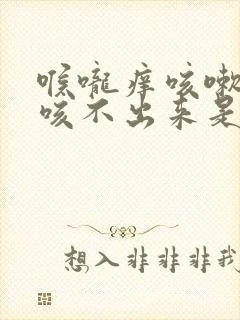 喉咙痒咳嗽
咳不出来是
想入非非非我